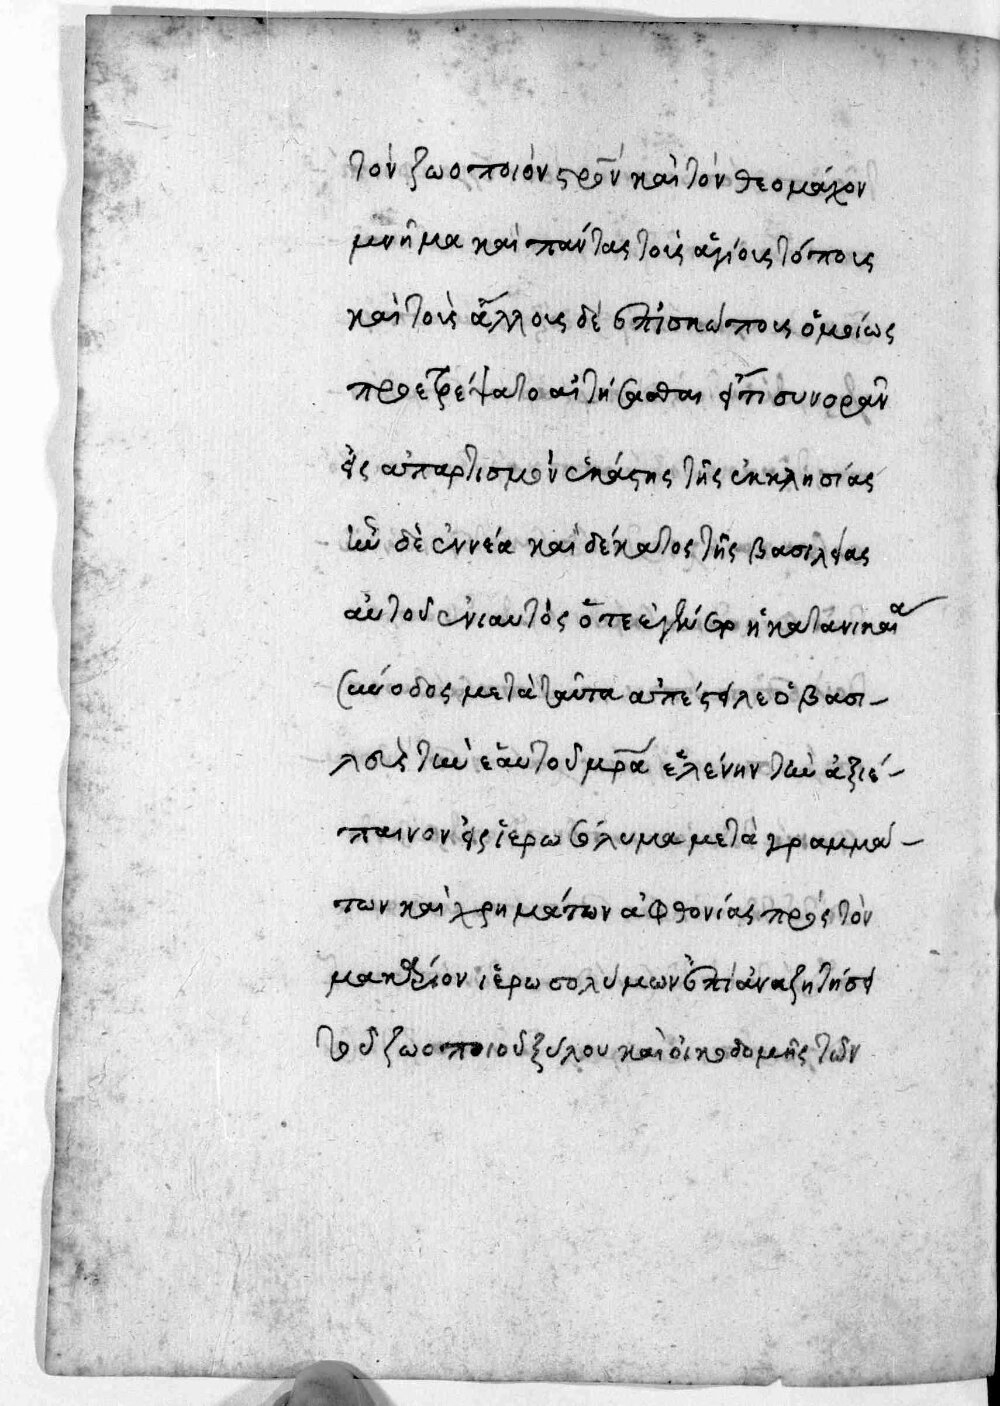 τὸν ζωοποιὸν σρὸν καὶ τὸν θεομάχον
μνῆμα καὶ πάντας τοὺς ἁγίοις τόποις
καὶ τοῖς ἄλλοις δὲ ἐπισκώποις ὁμοίως
προετρέψατο αἰτήσασθαι εἴ τι συνορᾶν
εἰς ἀπαρτισμὸν ἑκάστης τῆς ἐκκλησίας
ἦν δὲ ἐννέα καὶ δέκατος τῆς βασιλείας
αὐτοῦ ἐνιαυτὸς ὅτε ἐγένετο ἡ κατὰ νίκαιαν
σύνοδος μετὰ ταῦτα ἀπέστειλε ὁ βασι-
λεὺς τὴν ἑαυτοῦ μρα ἑλένην τὴν ἀξιέ-
παινον εἰς ἱεροσόλυμα μετὰ γραμμά-
των καὶ χρημάτων ἀφθονίας πρὸς τὸν
μακάριον ἱεροσολύμων ἐπὶ ἀναζητήσει
τοῦ ζωοποιοῦ ξύλου καὶ οἰκοδομῆς τῶν